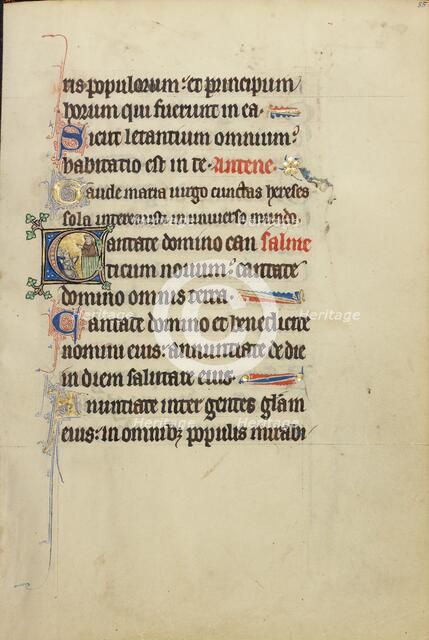 55
ris populorum: et principum
horum qui fuerunt in ea.
Sicut letantium omnium:
habitatio est in te. Antene.
Gaude maria uirgo cunctas hereses
sola interemisti in uniuerso mundo.
Cantate domino can salme
ticum nouum: cantate
domino omnis terra.
Cantate domino et benedicite
nomini eius: annuntiate de die
in diem salutare eius.
Anuntiate inter gentes gl̃am
eius: in omnibꝫ populis mirabi
Heritage Heritage
Heritage Heritage